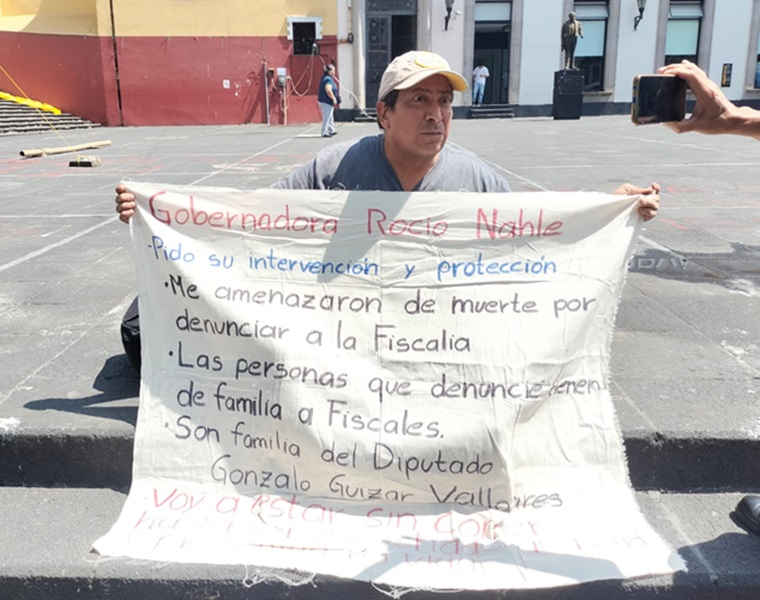 Gobernadora Rocío Nahle
-Pido su intervención y protección
·Me amenazaron de muerte por
denunciar a la Fiscalia
·Las personas que denuncie tienen
de familia a Fiscales.
·Son familia del Diputado
Gonzalo Guizar Vallares
Voy a estar sin